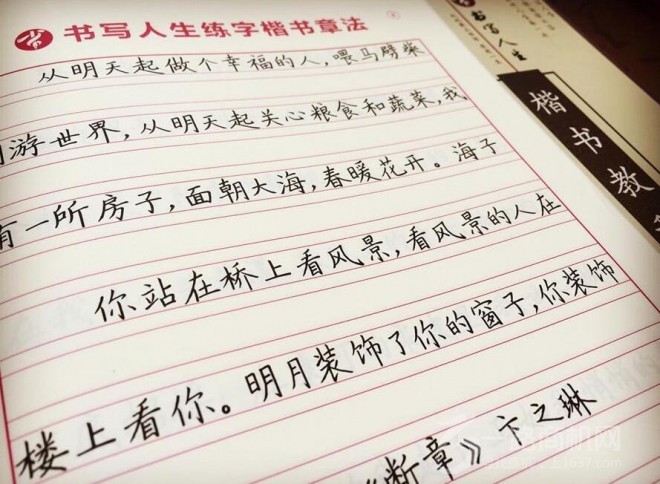 书写人生练字楷书章法
从明天起做个幸福的人，喂马劈柴
游世界，从明天起关心粮食和蔬菜，我
有一所房子，面朝大海，春暖花开。海子
你站在桥上看风景，看风景的人在
楼上看你。明月装饰了你的窗子，你装饰
《断章》卞之琳
书写人生
楷书教